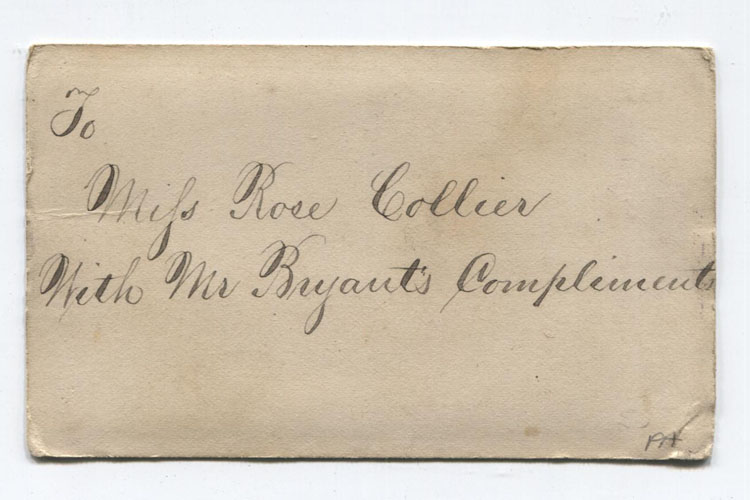 To
Miſs Rose Collier
With Mr Bryant's Compliments